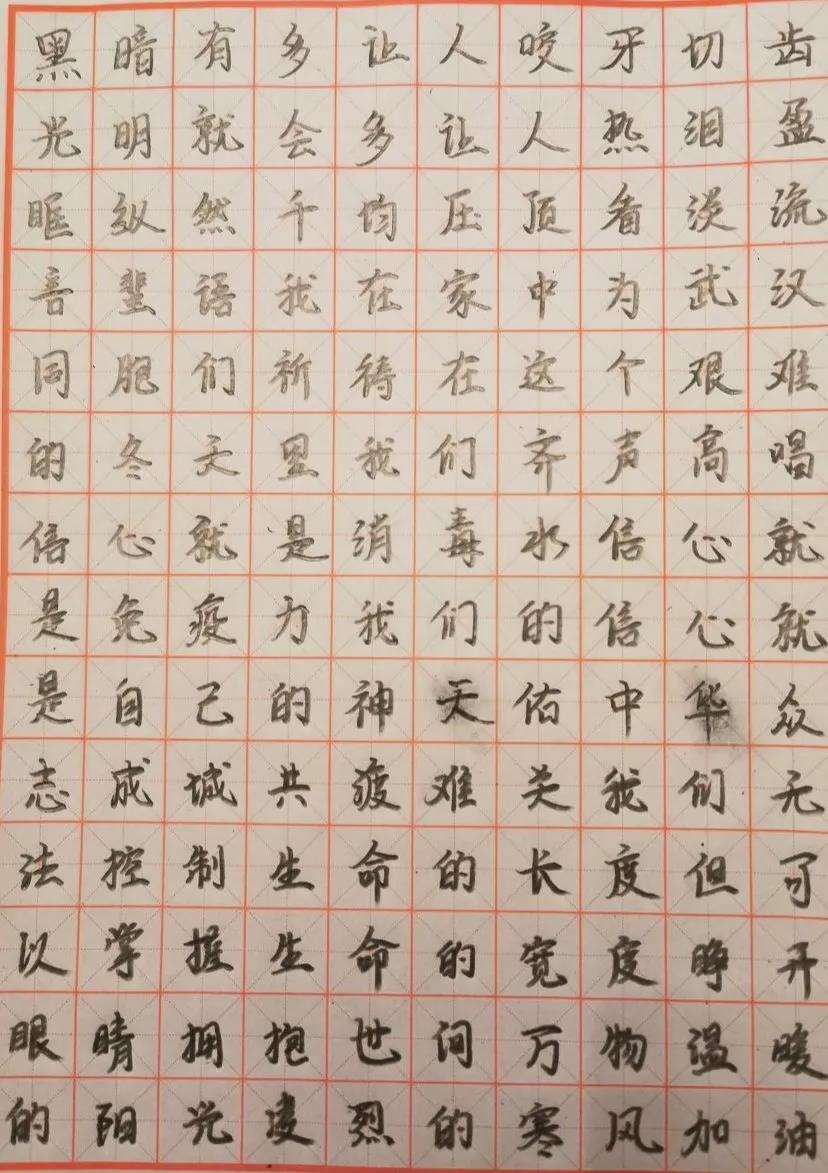 黑暗有多让人咬牙切齿
光明就会多让人热泪盈
眶纵然千钧压顶看淡流
言蜚语我在家中为武汉
同胞们祈祷在这个艰难
的冬天里我们齐声高唱
信心就是消毒水信心就
是免疫力我们的信心就
是自己的神天佑中华众
志成城共疫难关我们无
法控制生命的长度但可
以掌握生命的宽度睁开
眼睛拥抱世间万物温暖
的阳光凌烈的寒风加油